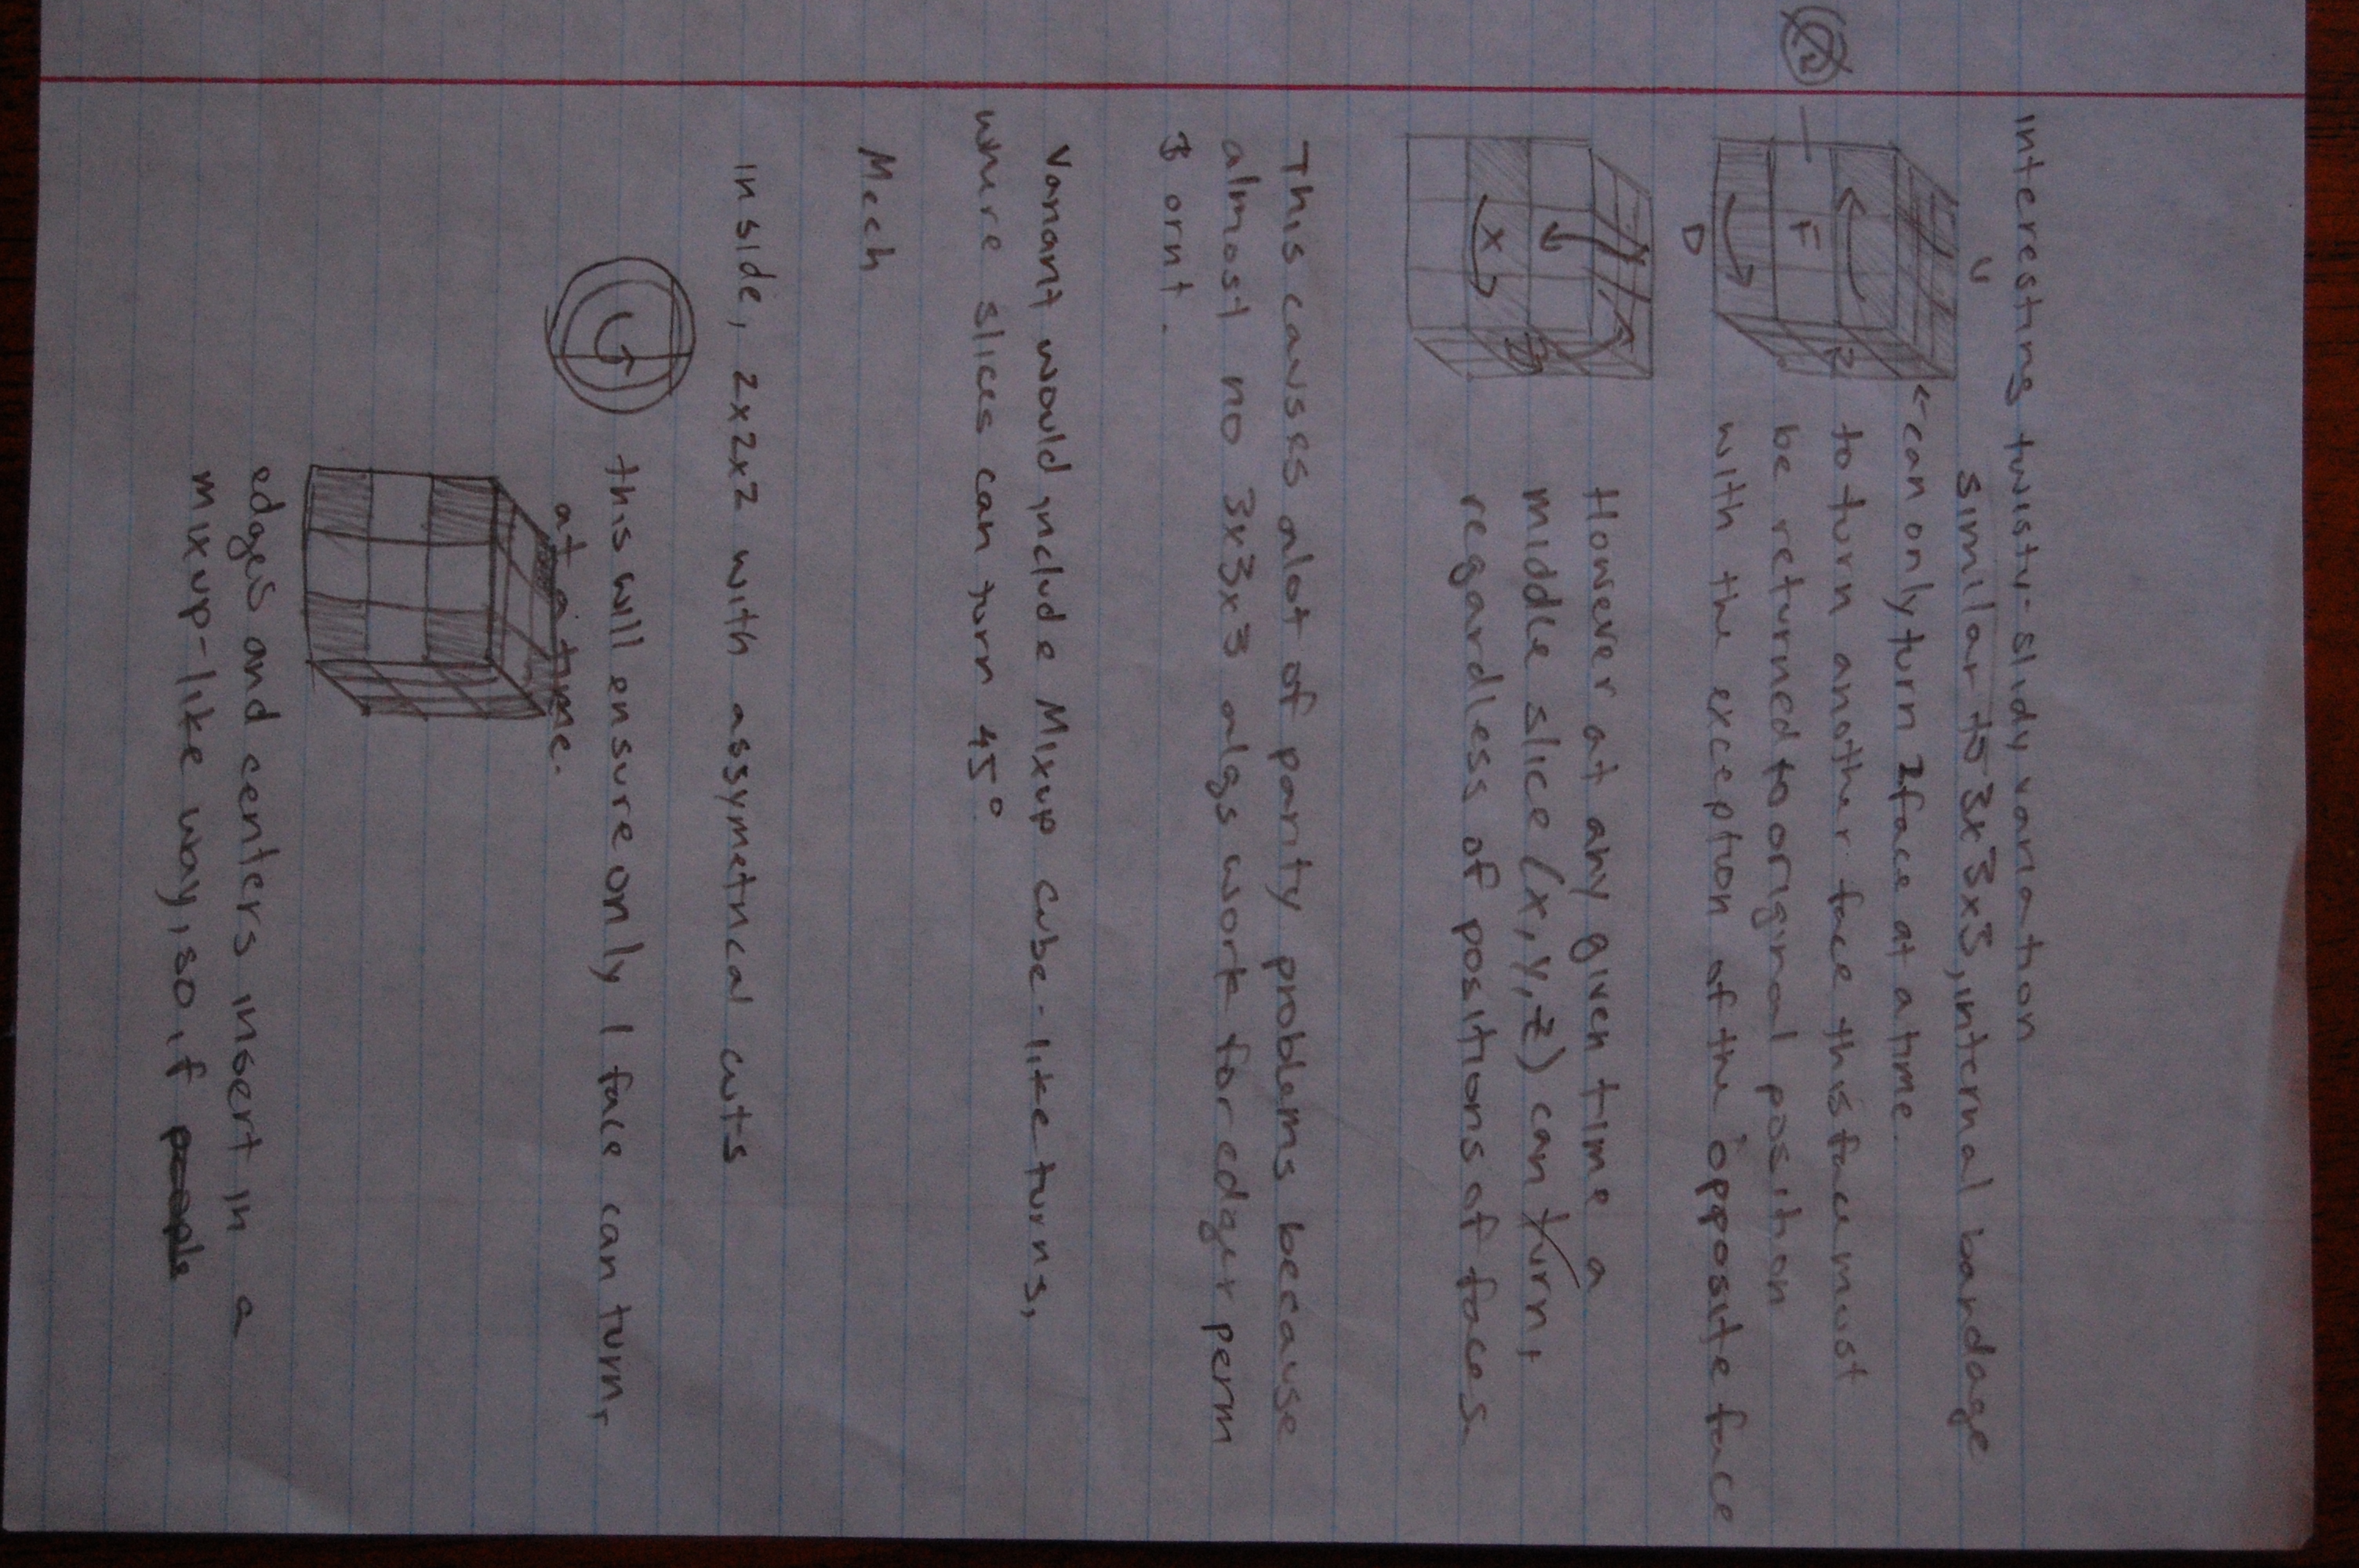 Interesting twisty-slidy variation
U
similar to 3x3x3, internal bandage
← can only turn 2 face at a time.
to turn another face this face must
F
R
be returned to original position
D
with the exception of the opposite face
However at any given time a
middle slice (x, y, z) can turn,
X
regardless of positions of faces
This causes alot of parity problems because
almost no 3x3x3 algs work for edger perm
& ornt.
Variant would include Mixup cube-like turns,
where slices can turn 45°
Mech
Inside, 2x2x2 with assymetrical cuts
this will ensure only 1 face can turn,
at a time.
edges and centers insert in a
mixup-like way, so if people